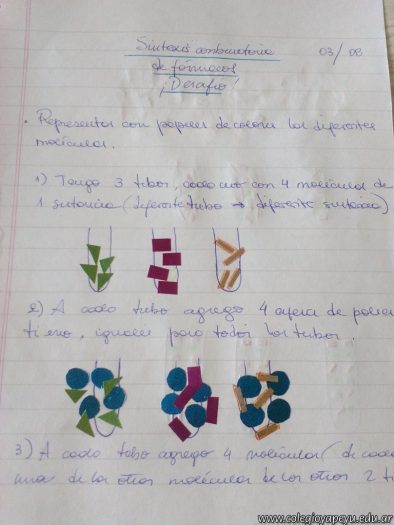 Síntesis combinatoria
03/08
de fármacos
¡Desafío!
• Representar con papeles de colores las diferentes
moléculas.
1) Tengo 3 tubos, cada uno con 4 moléculas de
1 sustancia (diferente tubo → diferente sustancia)
2) A cada tubo agrego 4 esferas de polies
tireno, iguales para todos los tubos.
3) A cada tubo agrego 4 moléculas (de cada
una de las otras moléculas de los otros 2 t
www.colegioyapeyu.edu.ar